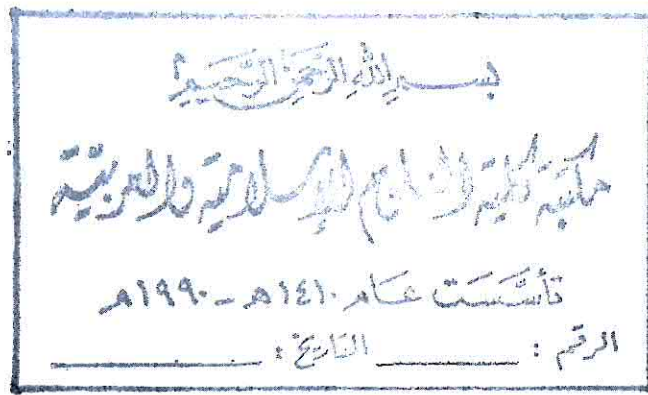 بسم الله الرحمن الرحيم
مكتبة كلية الإسلامية والعربية
تأسست عام ١٤١٠هـ - ١٩٩٠م
الرقم : التاريخ :